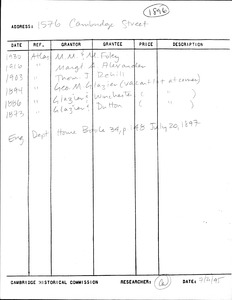 1896
ADDRESS: 1576 Cambridge Street
DATE REF. GRANTOR GRANTEE PRICE DESCRIPTION
1930 Atlas M.M. & M. Foley
1916 " Margt. A. Alexander
1903 " Thos. J.
1894 " Geo. M. Glazier (vacant lot at corner)
1886 " Glazier & ( " )
1873 " Glazier & Dutton ( " )
Eng. Dept. House Book 34, p. 148 July 20, 1897
CAMBRIDGE HISTORICAL COMMISSION RESEARCHER: DATE: